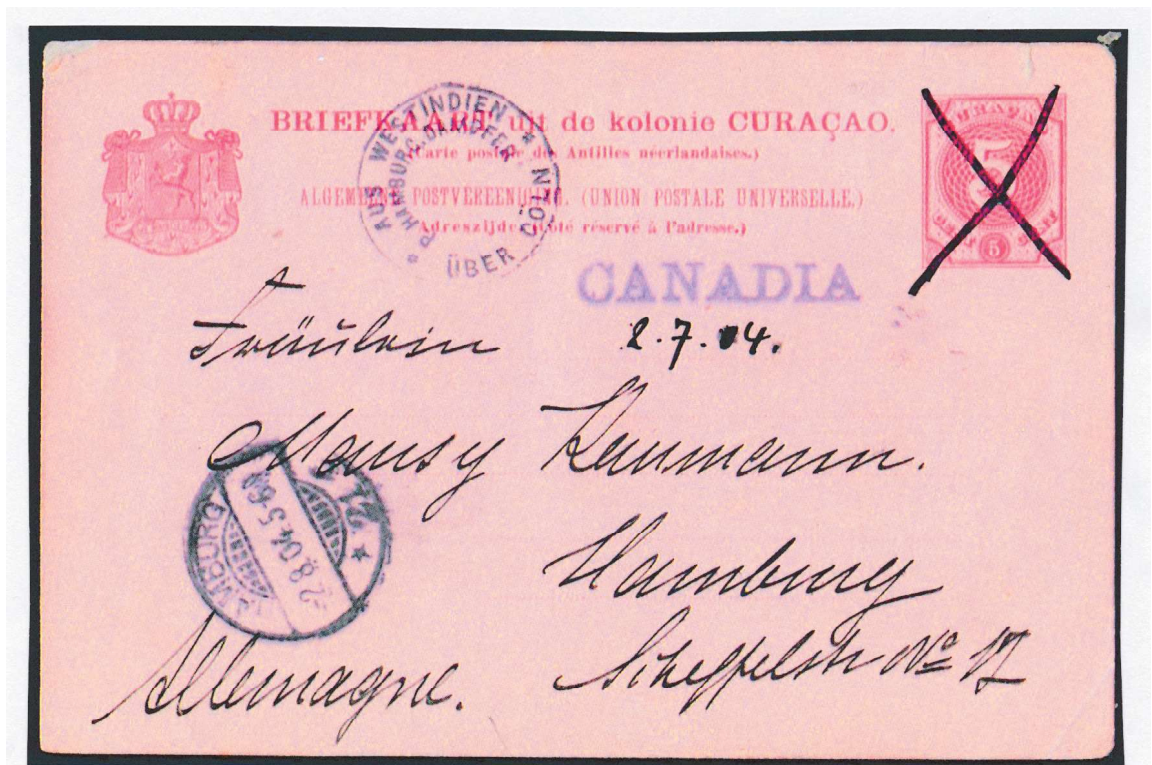 BRIEFKAART uit de kolonie CURAÇAO.
(Carte postale des Antilles néerlandaises.)
ALGEMEENE POSTVEREENIGING. (UNION POSTALE UNIVERSELLE.)
(Adreszijde. Côté réservé à l'adresse.)
AUS WESTINDIEN * ÜBER
HAMBURG. DAMPFER
CURAÇAO
5
5
CANADIA
Fräulein
2.7.04.
Mausy
Hamburg
Scheffelstr No 17
HAMBURG
-2.8.04.5-6
* 21
Allemagne.